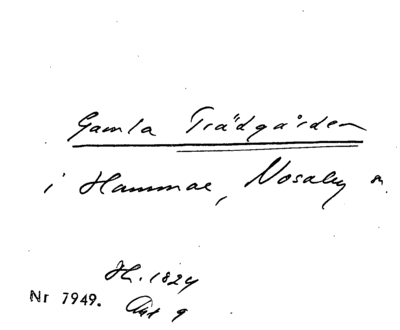 Gamla Trädgården
i Hammar, Nosaby sn.
H. 1824
Nr 7949.